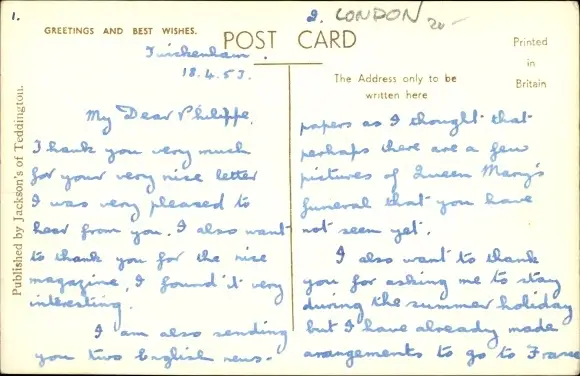 1.
2. LONDON
20-
GREETINGS AND BEST WISHES.
POST CARD
Printed
in
Britain
The Address only to be
written here
Published by Jackson's of Teddington.
Twickenham.
18.4.53.
My Dear Philippe,
Thank you very much
for your very nice letter
I was very pleased to
hear from you. I also want
to thank you for the nice
magazine, I found it very
interesting.
I am also sending
you two English news-
papers as I thought that
perhaps there are a few
pictures of Queen Mary's
funeral that you have
not seen yet.
I also want to thank
you for asking me to stay
during the summer holiday
but I have already made
arrangements to go to France